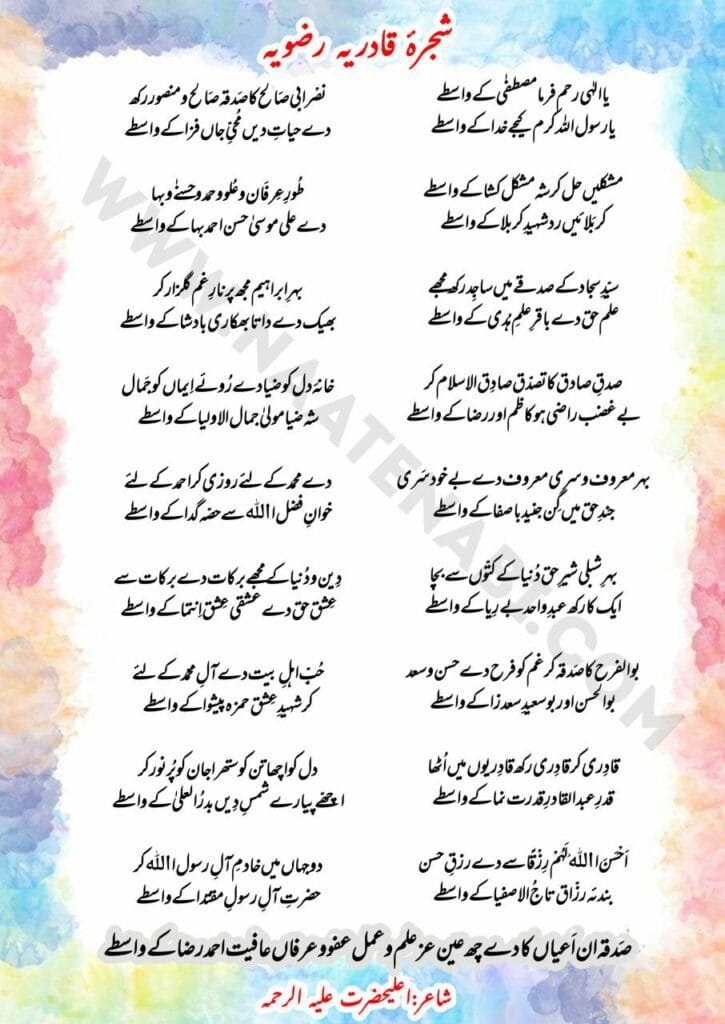 شجرۂ قادریہ رضویہ
یاالٰہی رحم فرما مصطفٰی کے واسطے
یارسول اللہ کرم کیجے خدا کے واسطے
مشکلیں حل کر شہ مشکل کشا کے واسطے
کر بلائیں رد شہیدِ کربلا کے واسطے
سیّدِ سجاد کے صدقے میں ساجد رکھ مجھے
علم حق دے باقرِ علمِ ہُدیٰ کے واسطے
صدقِ صادق کا تصدق صادِق الاسلام کر
بے غضب راضی ہو کاظم اور رضا کے واسطے
بہرِ معروف و سری معروف دے بے خود سَری
جندِ حق میں گِن جنیدِ باصفا کے واسطے
بہرِ شبلی شیرِ حق دُنیا کے کتّوں سے بچا
ایک کا رکھ عبدِ واحد بے رِیا کے واسطے
بوالفرح کا صَدقہ کر غم کو فرح دے حسن و سعد
بوالحسن اور بوسعیدِ سعدزا کے واسطے
قادِری کر قادِری رکھ قادِریوں میں اُٹھا
قدرِ عبدالقادرِ قدرت نما کے واسطے
اَحْسَنَ اللہُ لَهُمْ رِزْقًا سے دے رزقِ حسن
بندئہ رزّاق تاجُ الاصفیا کے واسطے
نصْرابی صَالح کا صَدقہ صَالح و منصور رکھ
دے حیاتِ دیں مُحیِّ جاں فزا کے واسطے
طُورِ عِرفَان و عُلو و حمد و حُسنٰے و بہا
دے علی موسیٰ حسن احمد بہا کے واسطے
بہرِ ابراہیم مجھ پر نارِ غم گلزار کر
بھیک دے داتا بھکاری بادشا کے واسطے
خانۂ دل کو ضیا دے رُوئے اِیماں کو جَمال
شہ ضیا مولیٰ جمال الاولیا کے واسطے
دے محمد کے لئے روزی کر احمد کے لئے
خوانِ فضل اللہ سے حصّہ گدا کے واسطے
دِین و دُنیا کے مجھے برکات دے برکات سے
عِشق حق دے عشقی عِشق اِنتما کے واسطے
حُبِّ اہلِ بیت دے آلِ محمد کے لئے
کر شہیدِ عِشق حمزہ پیشوا کے واسطے
دل کو اچھا تن کو ستھرا جان کو پُر نور کر
اچھے پیارے شمسِ دِیں بدرُ العلیٰ کے واسطے
دو جہاں میں خادمِ آلِ رسول اللہ کر
حضرتِ آلِ رسولِ مقتدا کے واسطے
صَدقہ ان اَعیاں کا دے چھ عین عز علم و عمل عفوو عرفاں عافیت احمد رضا کے واسطے
شاعر:اعلیحضرت علیہ الرحمہ
WWW.NAATENABI.COM